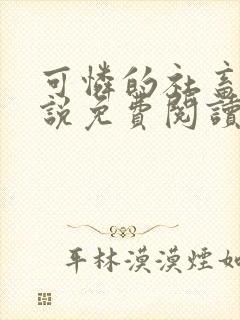 可憐的社畜
說免費閱讀
平林漠漠煙如